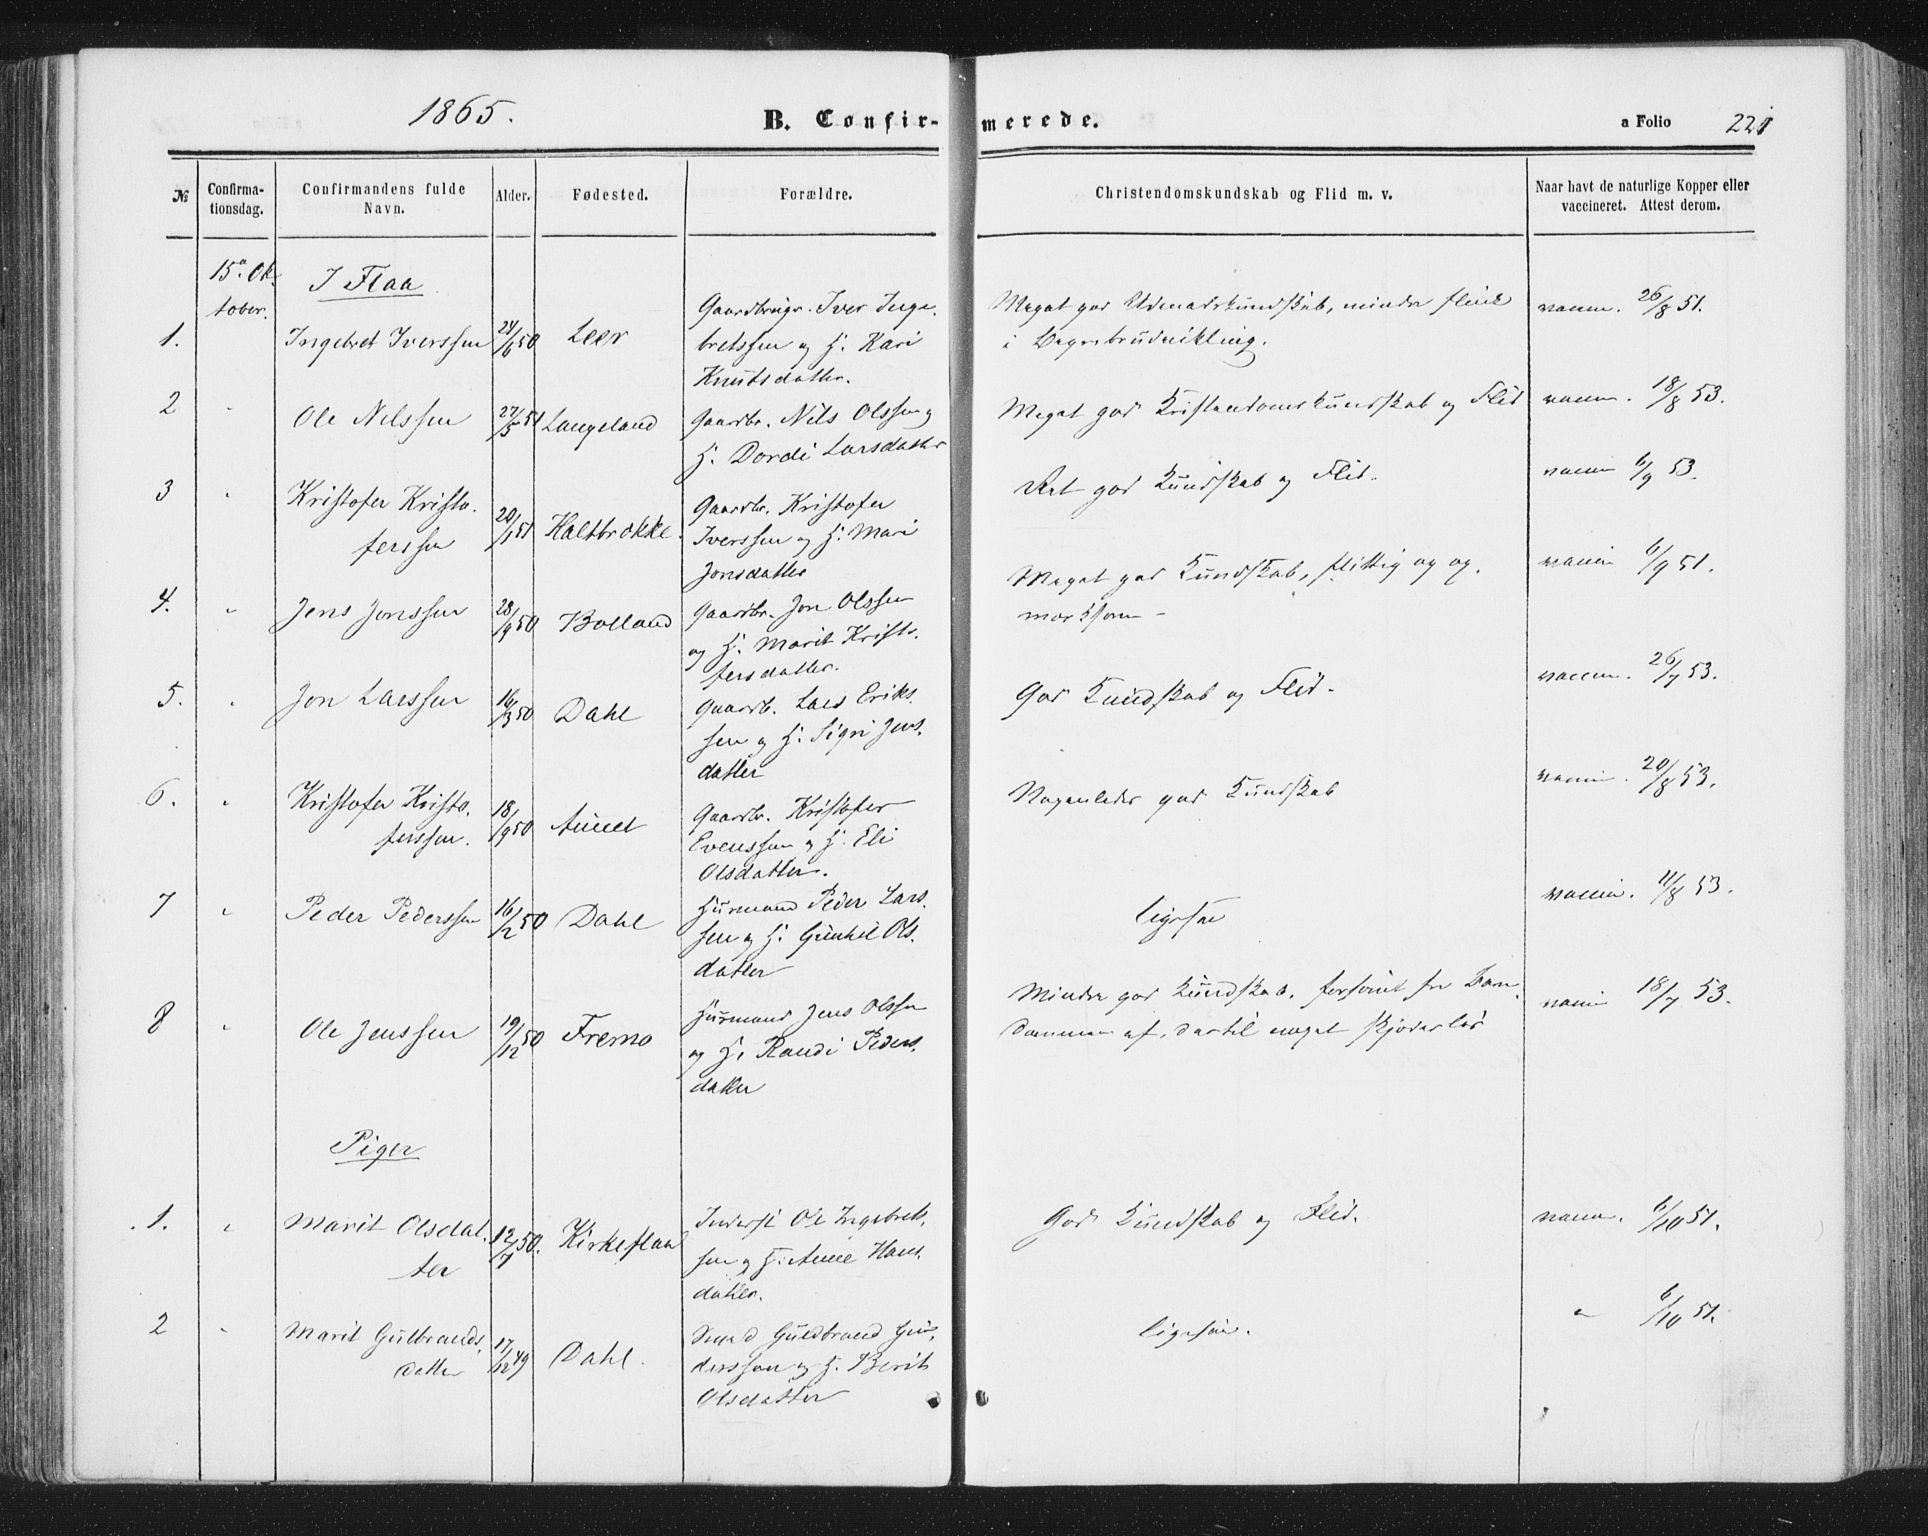 1865.
B. Confirmerede.
a Folio 221
№
Confirmationsdag.
Confirmandens fulde Navn.
Alder.
Fødested.
Forældre.
Christendomskundskab og Flid m. v.
Naar havt de naturlige Kopper eller vaccineret. Attest derom.
15de Oktober.
I Flaa
1. Ingebret Iverssen 24/6 50 Leer
Gaardbrugr. Iver Inge-
bretssen og H. Kari
Knutsdatter.
Meget god Udenadskundskab, mindre flink
i Begrebsudvikling.
vaccin. 26/8 51.
2 " Ole Nilssen 27/5 51 Langeland
Gaardbr. Nils Olssen og
H. Dordi Larsdatter
Meget god Kristendomskundskab og Flid
vaccin. 18/8 53.
3 " Kristofer Kristo-
ferssen 20/1 51 Kaltbrække.
Gaardbr. Kristofer
Iverssen og H. Mari
Jonsdatter
Ret god Kundskab og Flid.
vaccin 6/9 53.
4. " Jens Jonssen 28/9 50 Bolland
Gaardbr. Jon Olssen
og H. Marit Kristo-
fersdatter.
Meget god Kundskab, flittig og op-
mærksom
vaccin 6/9 51.
5. " Jon Larssen 16/3 50 Dahl
Gaardb. Lars Eriks-
sen og H. Sigri Jens-
datter
God Kundskab og Flid.
vaccin. 26/7 53.
6. " Kristofer Kristo-
ferssen. 18/9 50 Aunet
Gaardbr. Kristofer
Evenssen og H. Eli
Olsdatter.
Nogenledes god Kundskab
vaccin. 20/8 53.
7 " Peder Pederssen 16/2 50 Dahl
Husmand Peder Lars-
sen og H. Gunhil Ols-
datter
ligesaa
vaccin. 11/8 53.
8 " Ole Jenssen 19/12 50 Fremo
Husmand Jens Olssen
og H. Randi Peders-
datter
Mindre god Kundskab, forsømt fra Barn-
dommen af, dertil noget skjødesløs
vaccin 18/7 53.
Piger
1. " Marit Olsdat-
ter 12/7 50. Kirkeflaa
Inderst Ole Ingebret-
sen og H. Anne Hans-
datter.
God Kundskab og Flid.
vaccin. 6/10 51.
2 " Marit Gulbrands-
datter 17/12 49 Dahl.
Guldbrand Gun-
derssen og H. Berit
Olsdatter
ligesaa.
" 6/10 51.